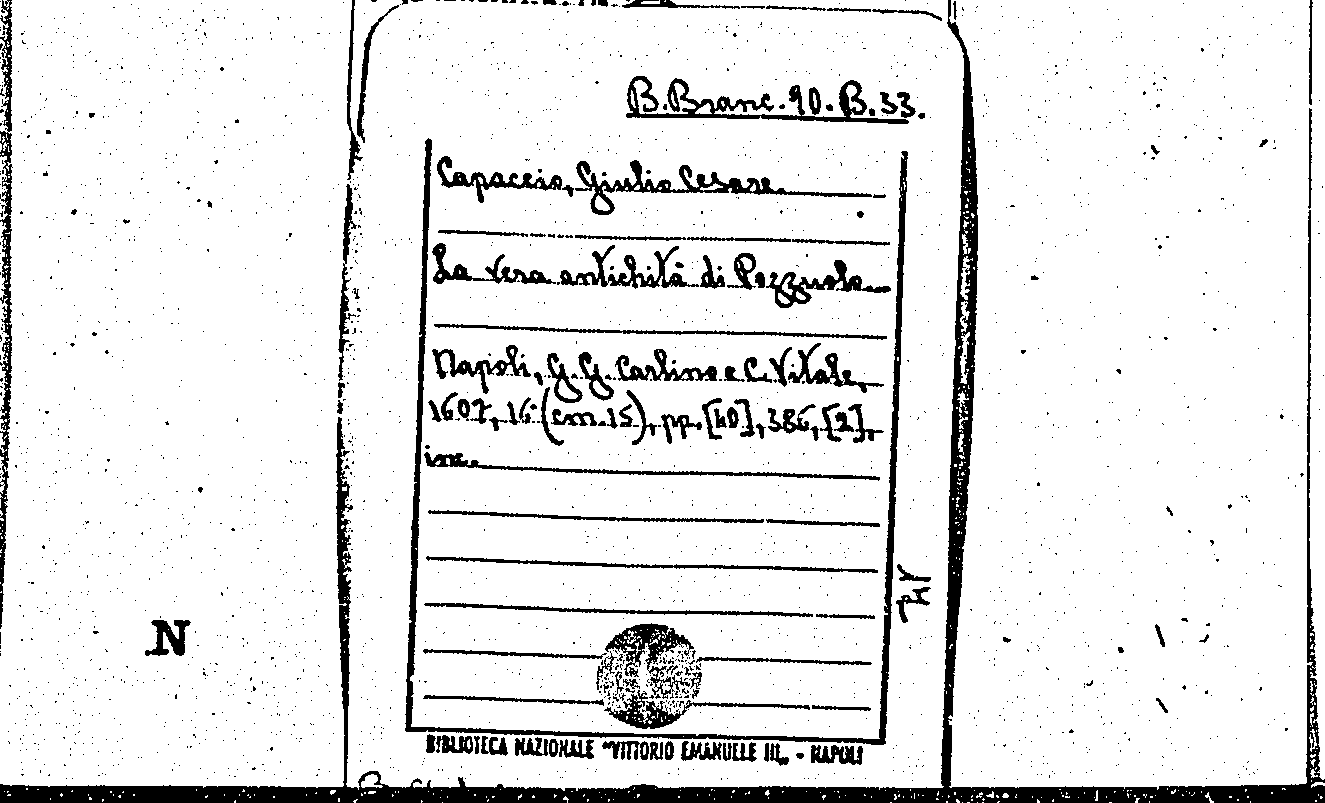 B.Branc.90.B.33.
Capaccio, Giulio Cesare.
La vera antichità di Pozzuolo...
Napoli, G.G. Carlino e C. Vitale,
1607, 16° (cm.15), pp. [40], 386, [2],
inc.
N
BIBLIOTECA NAZIONALE "VITTORIO EMANUELE III„ - NAPOLI